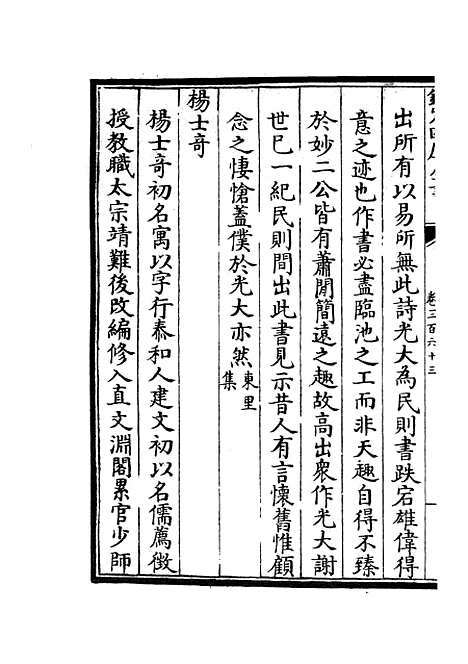 欽定四庫全書
卷三百六十三
出所有以易所無此詩光大為民則書跌宕雄偉得
意之迹也作書必盡臨池之工而非天趣自得不臻
於妙二公皆有蕭閒簡遠之趣故高出衆作光大謝
世已一紀民則間出此書見示昔人有言懷舊惟顧
念之悽愴蓋僕於光大亦然東里集
楊士奇
楊士奇初名寓以字行泰和人建文初以名儒薦徴
授教職太宗靖難後改編修入直文淵閣累官少師